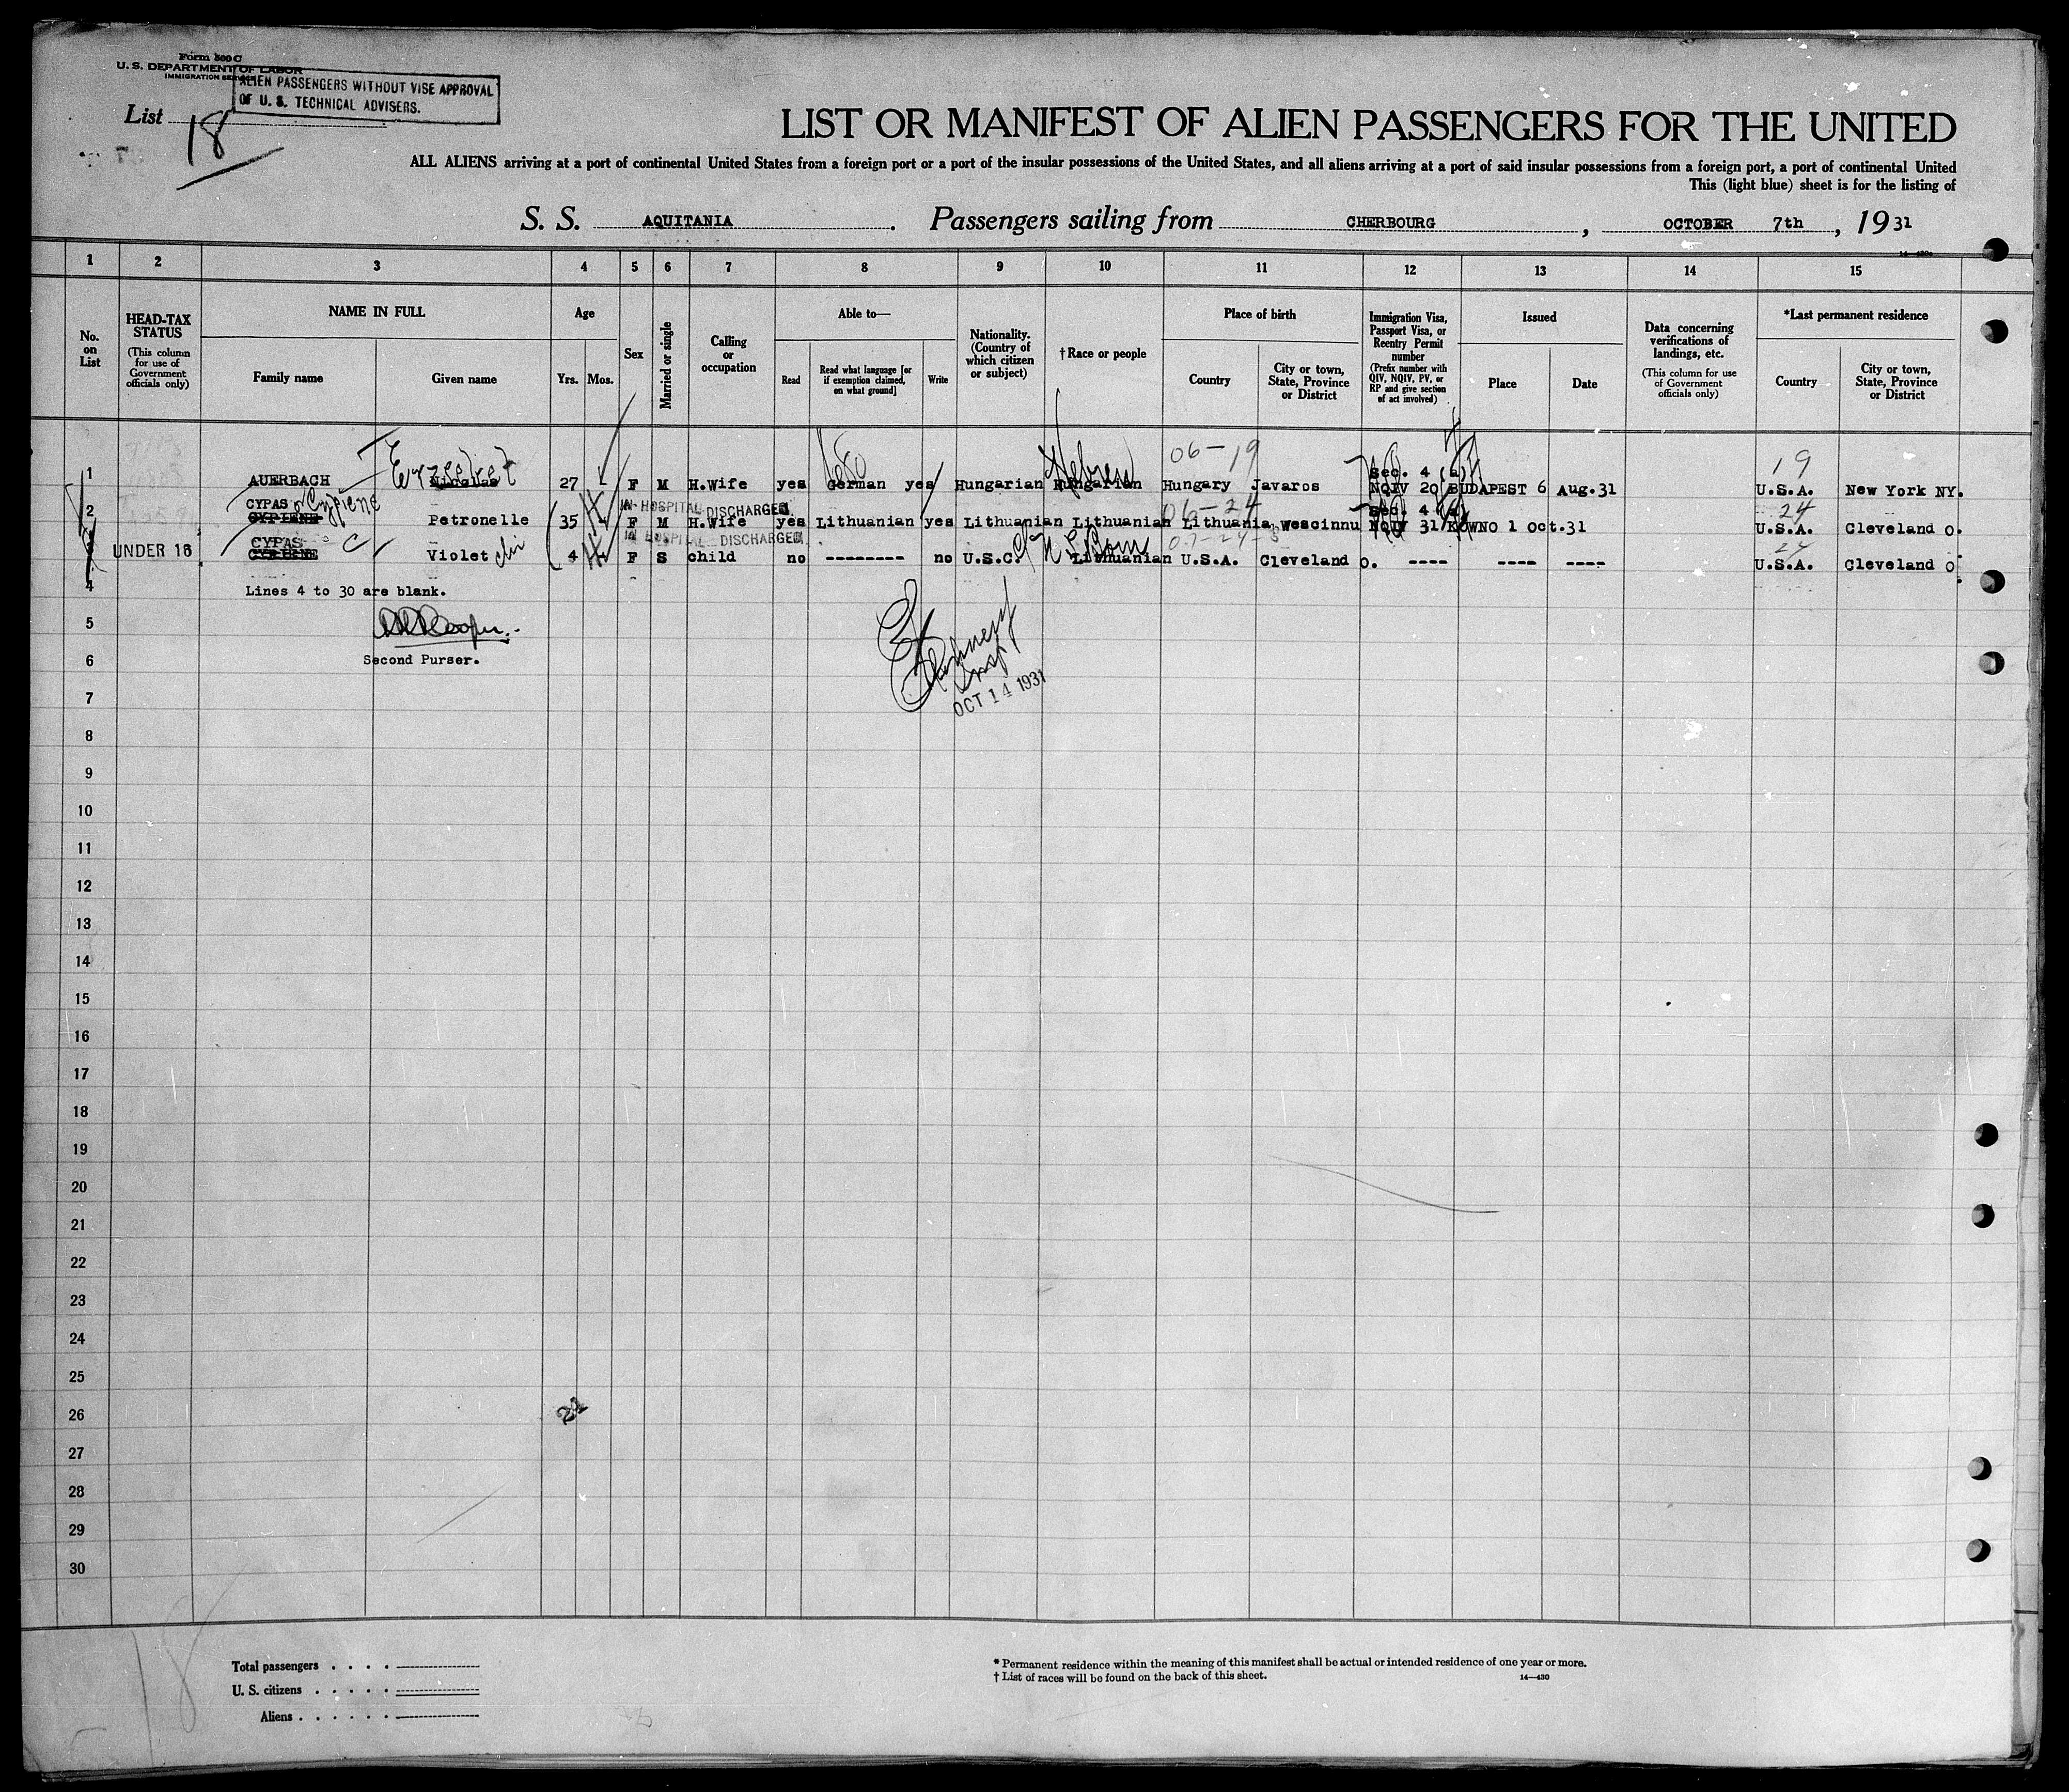 Form 500 C
U. S. DEPARTMENT OF LABOR
IMMIGRATION SERVICE
ALIEN PASSENGERS WITHOUT VISE APPROVAL
OF U. S. TECHNICAL ADVISERS.
List 18
LIST OR MANIFEST OF ALIEN PASSENGERS FOR THE UNITED
ALL ALIENS arriving at a port of continental United States from a foreign port or a port of the insular possessions of the United States, and all aliens arriving at a port of said insular possessions from a foreign port, a port of continental United
This (light blue) sheet is for the listing of
S. S. AQUITANIA. Passengers sailing from CHERBOURG, OCTOBER 7th, 1931
1 2 3 4 5 6 7 8 9 10 11 12 13 14 15
No. on List
HEAD-TAX STATUS (This column for use of Government officials only)
NAME IN FULL
Family name Given name
Age
Yrs. Mos.
Sex
Married or single
Calling or occupation
Able to—
Read Read what language [or if exemption claimed, on what ground] Write
Nationality. (Country of which citizen or subject)
†Race or people
Place of birth
Country City or town, State, Province or District
Immigration Visa, Passport Visa, or Reentry Permit number (Prefix number with QIV, NQIV, PV, or RP and give section of act involved)
Issued
Place Date
Data concerning verifications of landings, etc. (This column for use of Government officials only)
*Last permanent residence
Country City or town, State, Province or District
Erzsebet Hebrew 06-19 Sec. 4 (a) 19
1 AUERBACH Nicolas 27 F M H.Wife yes German yes Hungarian Hungarian Hungary Javaros NQIV 20 BUDAPEST 6 Aug.31 U.S.A. New York NY.
CYPAS or Cypiene IN HOSPITAL DISCHARGED. 06-24 Sec. 4 (a) 24
2 CYPIENE Petronelle 35 F M H.Wife yes Lithuanian yes Lithuanian Lithuanian Lithuania Wescinnu NQIV 31 KOWNO 1 Oct.31 U.S.A. Cleveland O.
CYPAS IN HOSPITAL DISCHARGED. 24
3 UNDER 16 CYPIENE Violet 4 F S child no -------- no U.S.C. Lithuanian U.S.A. Cleveland O. ---- ---- ---- U.S.A. Cleveland O.
4 Lines 4 to 30 are blank.
5
6 Second Purser.
7 OCT 14 1931
8
9
10
11
12
13
14
15
16
17
18
19
20
21
22
23
24
25
26 21
27
28
29
30
18
Total passengers
U. S. citizens
Aliens
* Permanent residence within the meaning of this manifest shall be actual or intended residence of one year or more.
† List of races will be found on the back of this sheet. 14—430